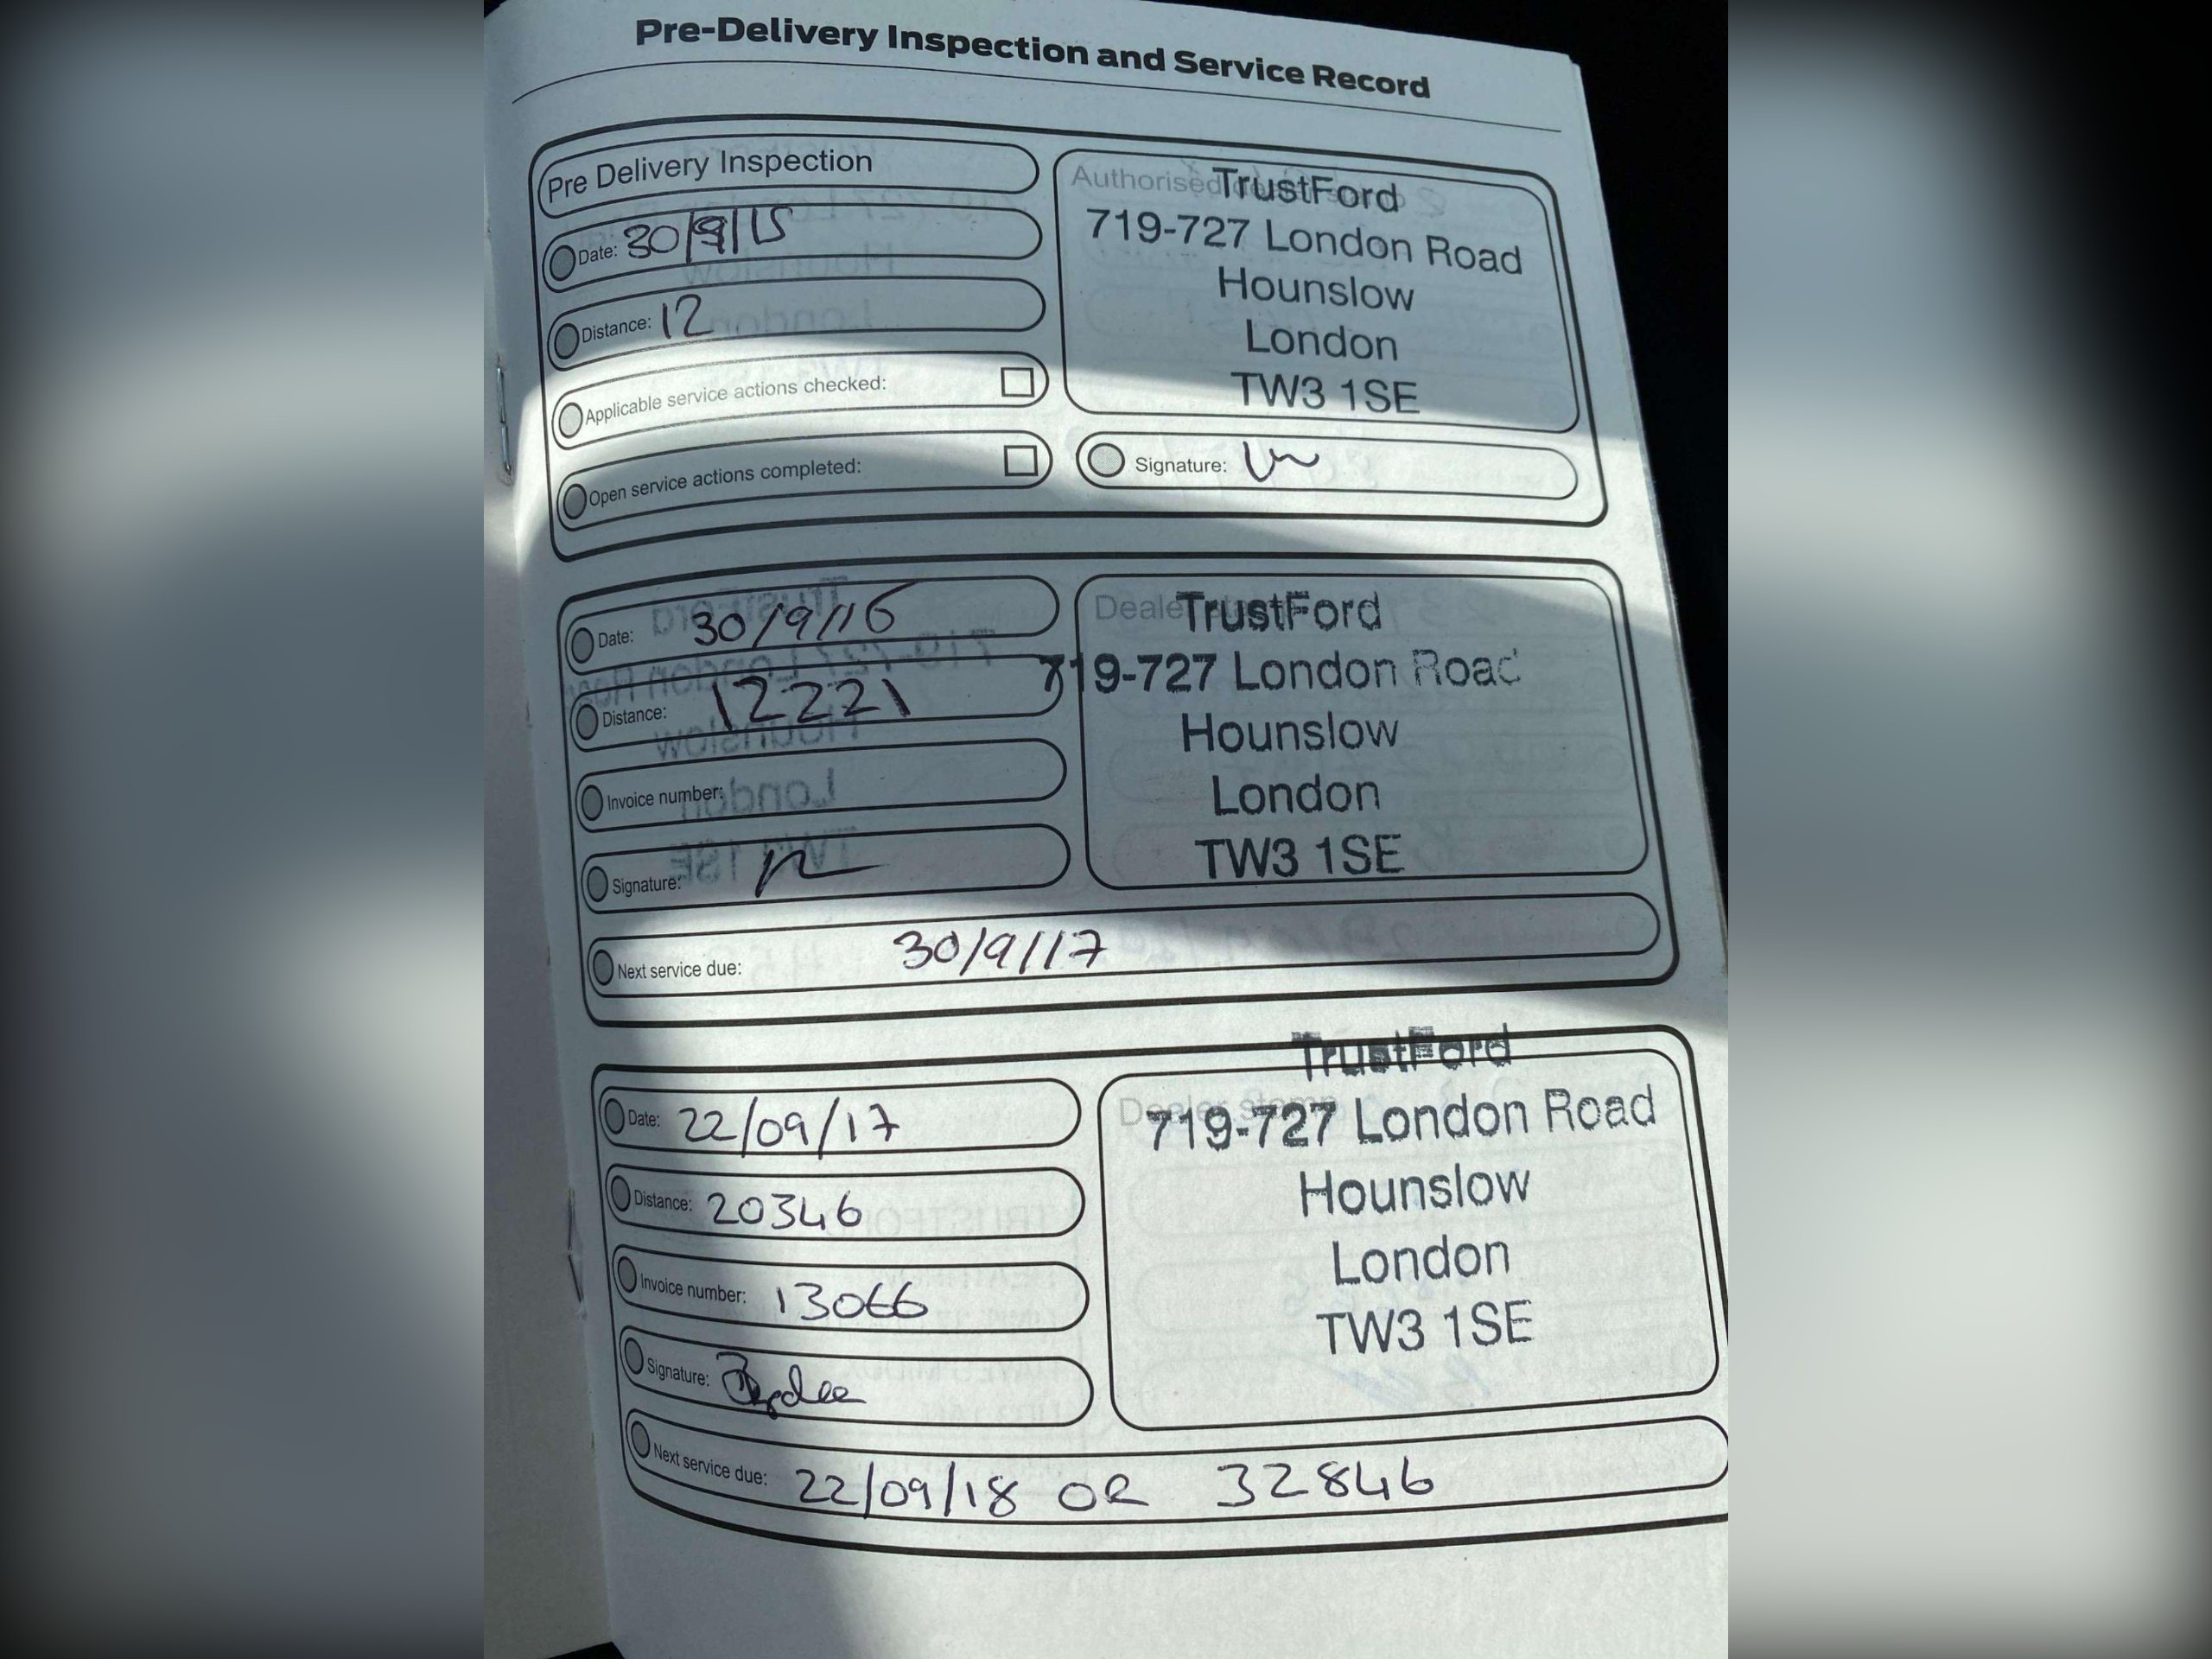 Pre-Delivery Inspection and Service Record
Pre Delivery Inspection
Date: 30/9/15
Distance: 12
Applicable service actions checked:
Open service actions completed:
Authorised
TrustFord
719-727 London Road
Hounslow
London
TW3 1SE
Signature:
Date: 30/9/16
Distance: 12221
Invoice number:
Signature:
Next service due: 30/9/17
TrustFord
719-727 London Road
Hounslow
London
TW3 1SE
Date: 22/09/17
Distance: 20346
Invoice number: 13066
Signature:
Next service due: 22/09/18 OR 32846
Dealer stamp
TrustFord
719-727 London Road
Hounslow
London
TW3 1SE